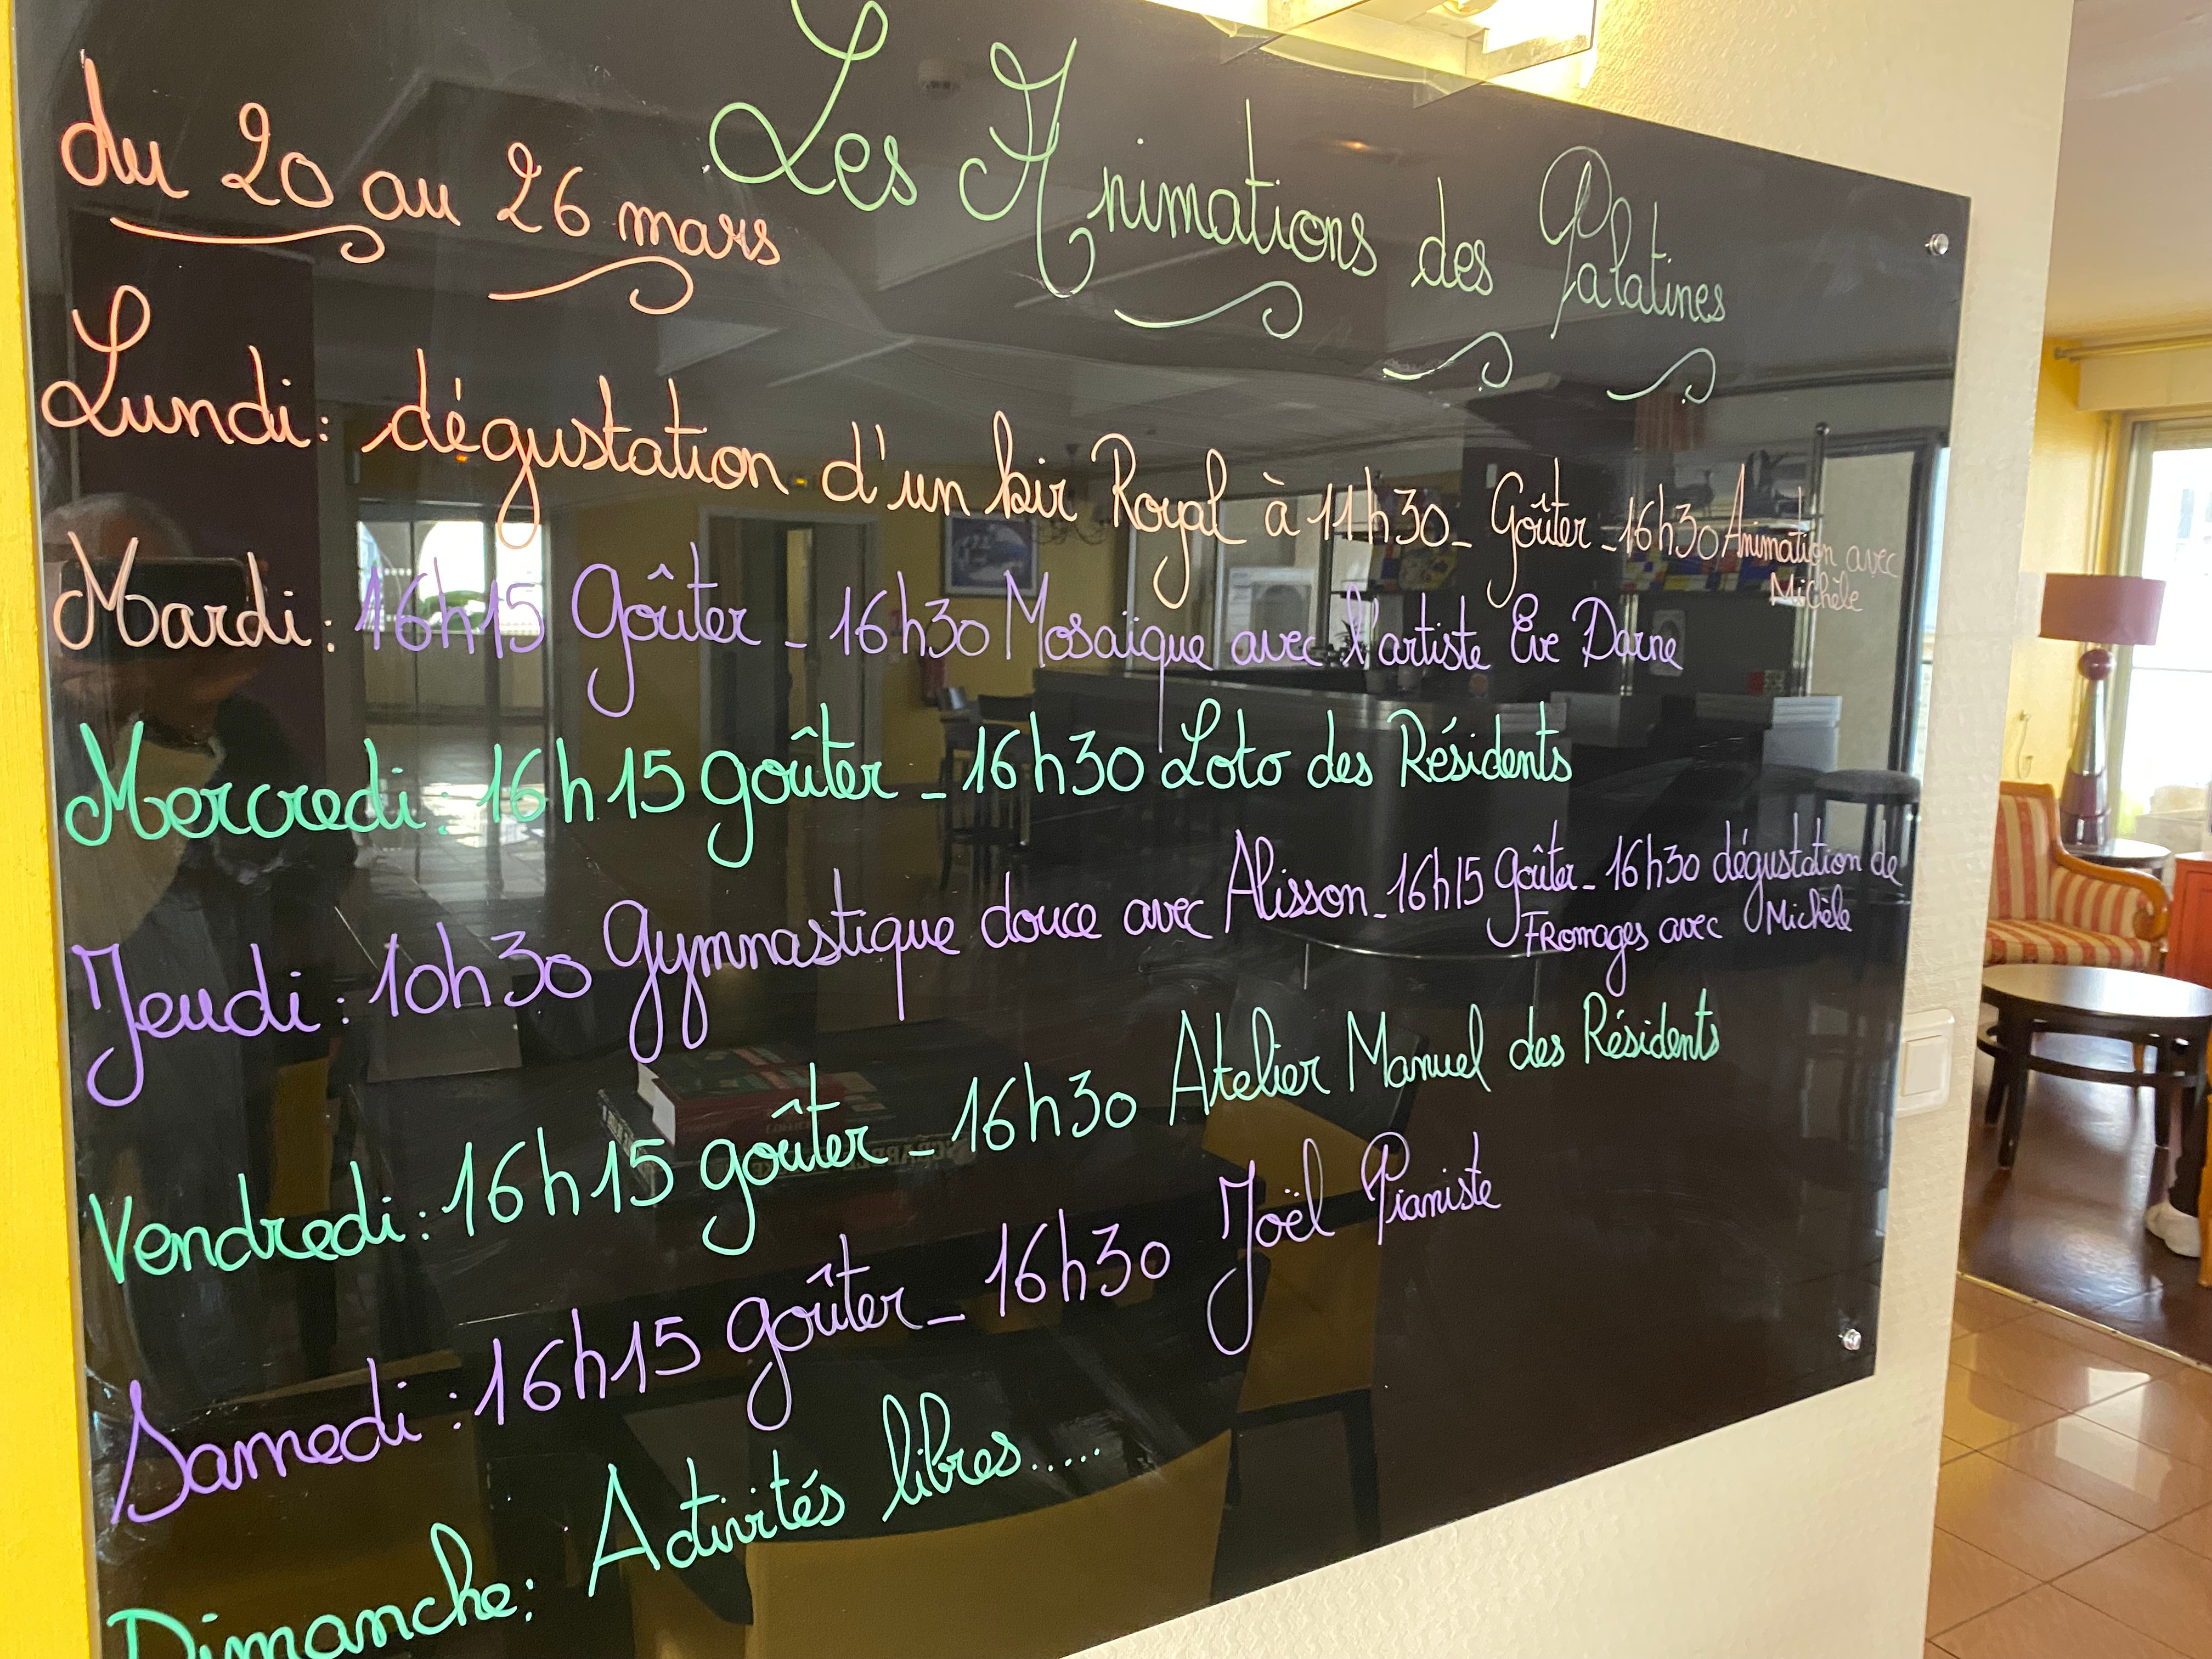 Les Animations des Palatines
du 20 au 26 mars
Lundi: dégustation d'un kir Royal à 11h30_ Goûter _16h30 Animation avec
Michèle
Mardi: 16h15 Goûter _ 16h30 Mosaïque avec l'artiste Eve Darne
Mercredi: 16h15 goûter _ 16h30 Loto des Résidents
Jeudi: 10h30 Gymnastique douce avec Alisson_16h15 goûter_ 16h30 dégustation de
Fromages avec Michèle
Vendredi: 16h15 goûter _ 16h30 Atelier Manuel des Résidents
Samedi: 16h15 goûter_ 16h30 Joël Pianiste
Dimanche: Activités libres.....